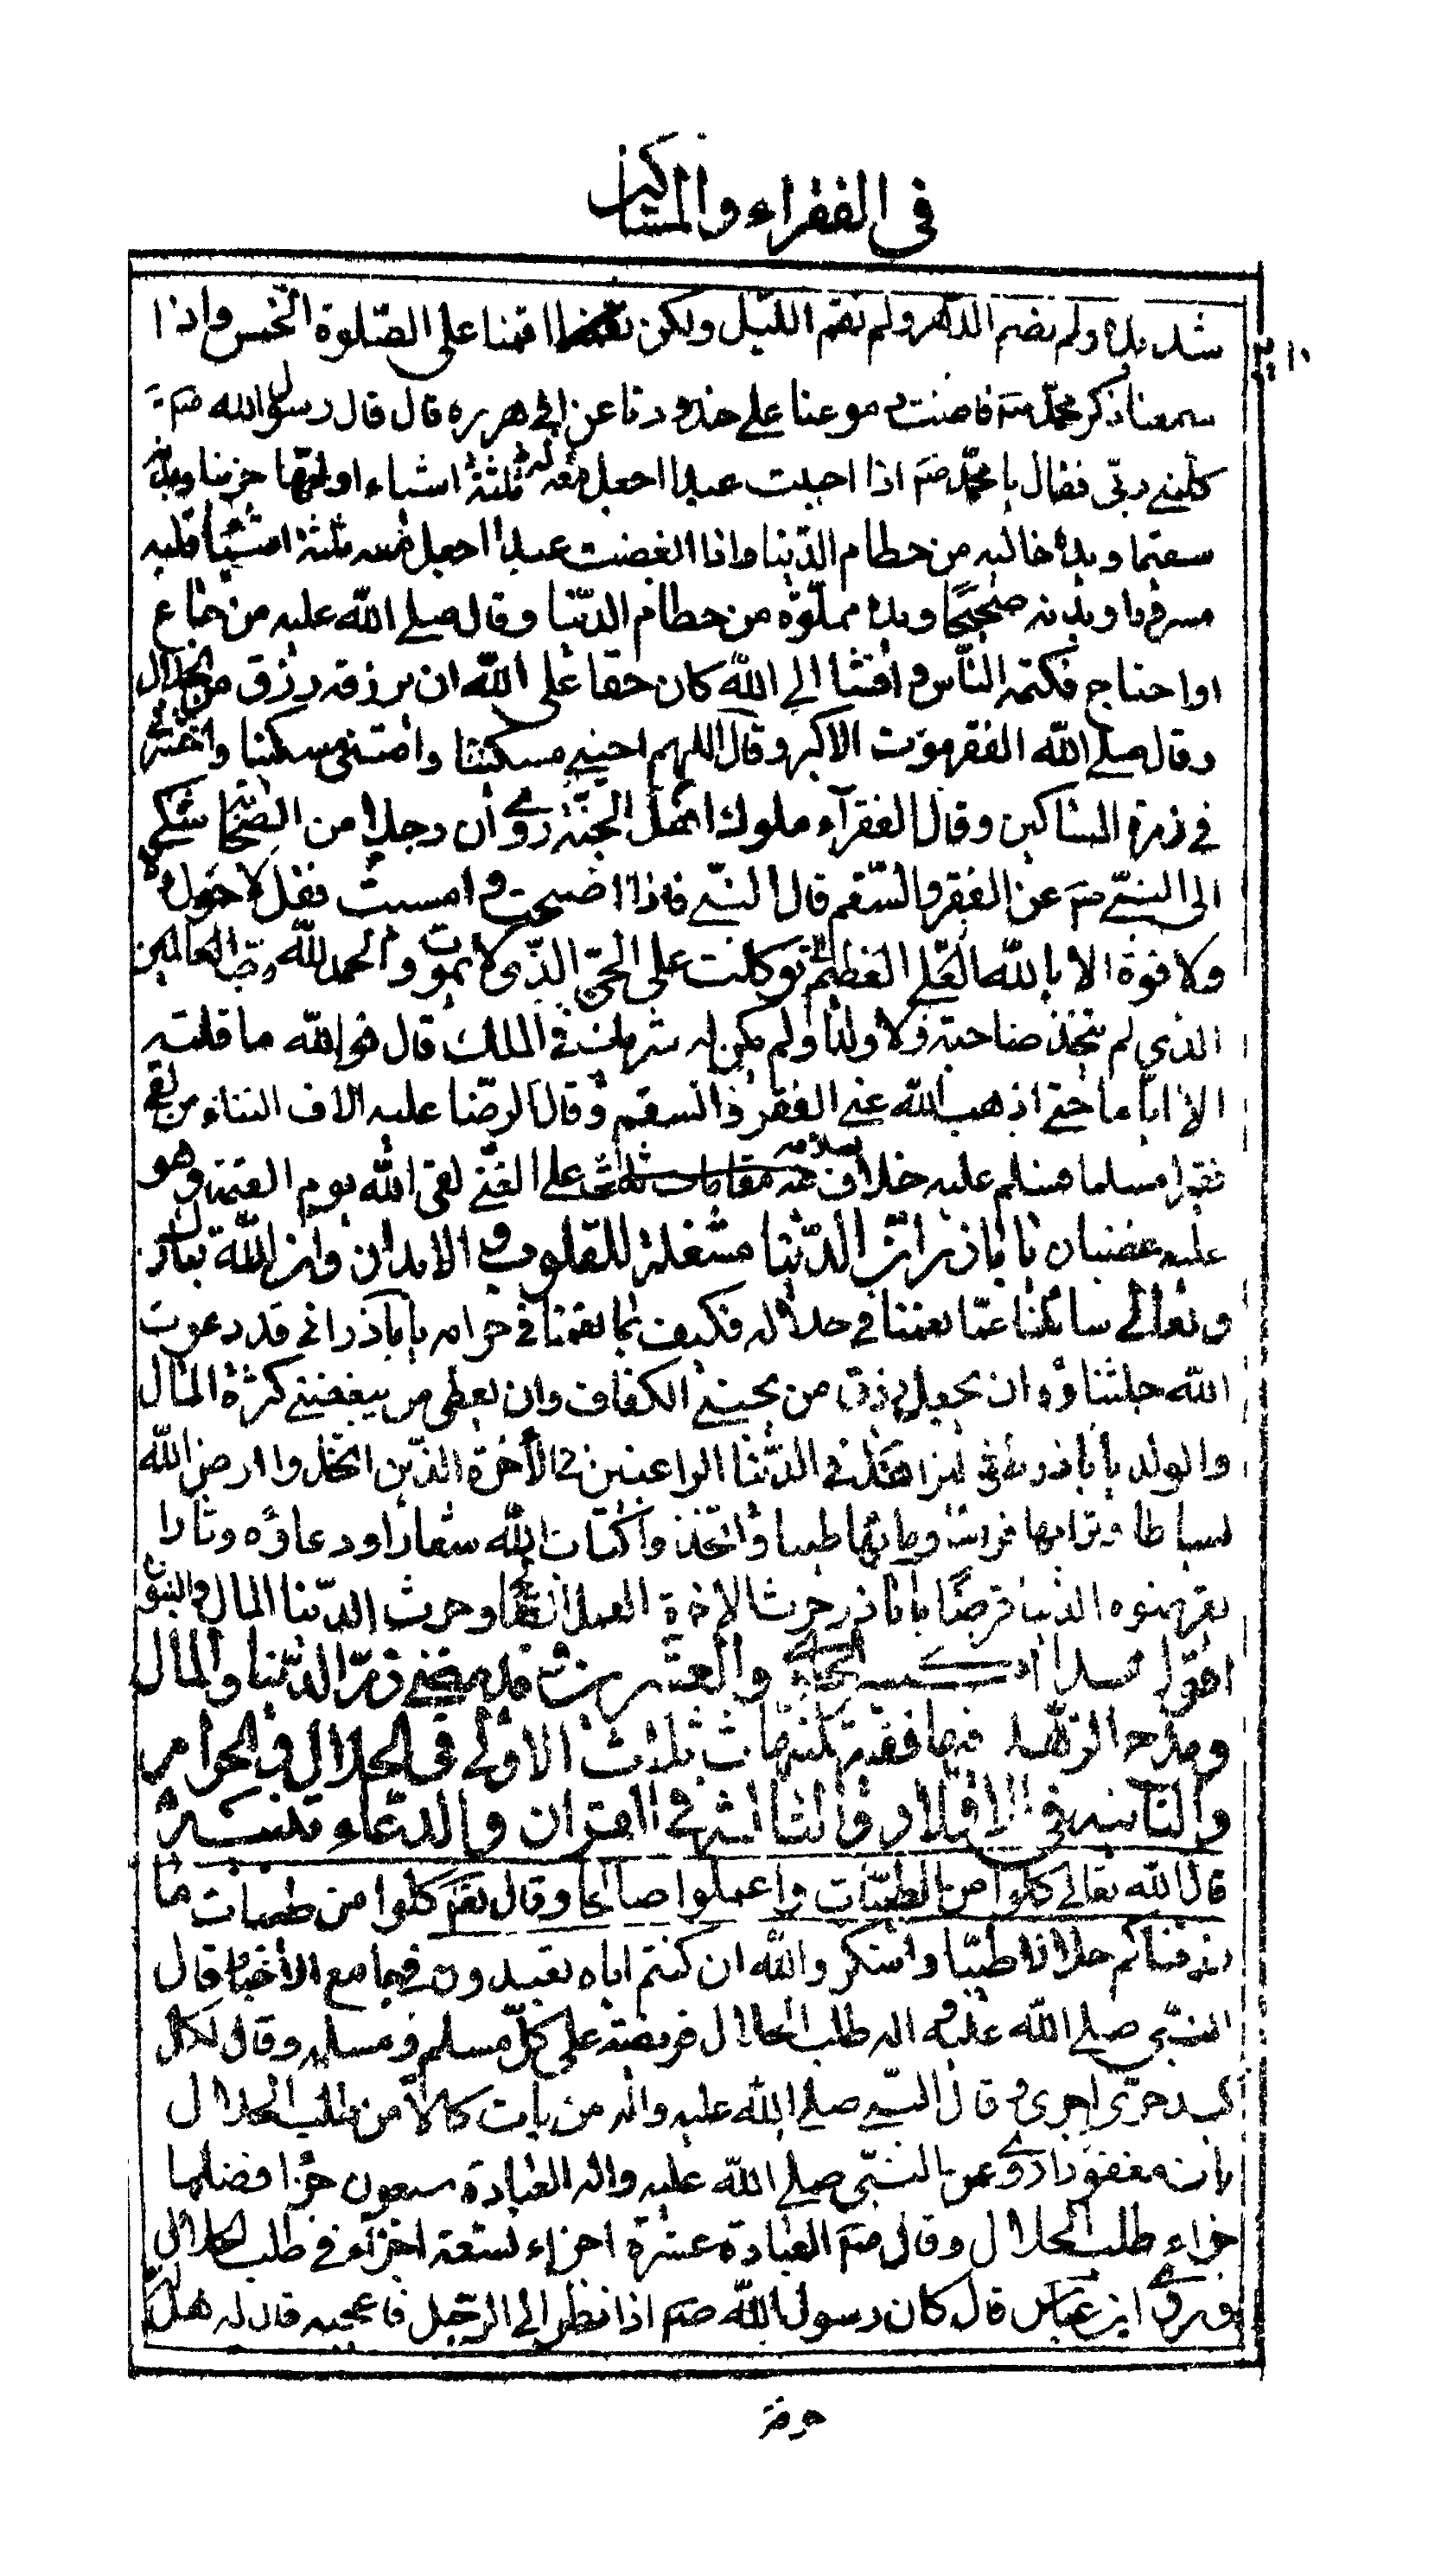 في الفقراء والمساكين
شديدة ولم نصم الدهر ولم نقم الليل ولكن اقمنا على الصّلوة الخمس واذا
سمعنا ذكر محمّد صم فاضت دموعنا على خدودنا عن ابي هريره قال قال رسول الله صم
كلّمني ربّي فقال يا محمّد صم اذا احببت عبدا اجعل معه ثلثة اشياء اولها حزينا وبدنه
سقيما ويده خاليه من حطام الدّنيا واذا ابغضت عبدا اجعل معه ثلثة اشيئا قلبه
مسرورا وبدنه صحيحًا ويده مملوّة من حطام الدّنيا وقال صلى الله عليه من جاع
او احتاج فكتمه النّاس وافشا الى الله كان حقا على الله ان يرزقه رزق من الحلال
وقال صلى الله الفقر موت الاكبر وقال اللهم احيني مسكينا وامتني مسكينا واحشرني
في زمرة المساكين وقال الفقرآء ملوك اهل الجنّة روى ان رجلا من الصّحا شكى
الى النبيّ صم عن الفقر والسّقم قال النبيّ فاذا اصبحت وامسيت فقل لا حول
ولا قوة الا بالله العليّ العظيم توكلت على الحيّ الذّي لا يموت والحمد لله ربّ العالمين
الذي لم يتخذ صاحبة ولا ولدا ولم يكن له شريك في الملك قال فوالله ما قلته
الا اياما حتى اذهب الله عني الفقر والسقم وقال الرضا عليه الاف الثناء من لقى
فقيرا مسلما فسلم عليه خلاف سلامه على الغني لقى الله يوم القيمة وهو
عليه غضبان يا اباذر انّ الدّنيا مشغلة للقلوب والابدان وان الله تبارك
وتعالى سائلنا عمّا نعمنا في حلاله فكيف بما نعمنا في حرامه يا اباذر اني قد دعوت
الله جلّ ثناؤه ان يجعل رزق من يحبني الكفاف وان يعطي من يبغضني كثرة المال
والولد يا اباذر طوبى للزاهدين في الدّنيا الراغبين في الأخرة الذّين اتخذوا ارض الله
بساطا وترابها فراشا ومائها طيبا واتخذوا كتاب الله شعارا ودعاؤه دثارا
يقرضوه الدنيا قرضًا يا اباذر حرث الاخرة العمل الصالح وحرث الدّنيا المال والبنون
اقول والعشرين قد مضى ذمّ الدّنيا والمال
ومدح الزهد فيها ففيه ثلاث الاولى في الحلال والحرام
والثانيه في الثالثه في القران والدّعاء
قال الله تعالى كلوا من الطيّبات واعملوا صالحا وقال تعم كلوا من طيبات ما
رزقناكم حلالا طيّبا واشكروالله ان كنتم اياه تعبدون في جامع الأخبار قال
النبّي صلى الله عليه واله طلب الحلال فريضة على كلّ مسلم ومسلمه وقال لكل
كبد حرّى اجرى وقال النبيّ صلى الله عليه واله من بات كالّا من طلب الحلال
بات مغفورا روى عن النبّي صلى الله عليه واله العبادة سبعون جزا افضلها
جزاء طلب الحلال وقال صم العبادة عشرة اجزاء تسعة اجزآء في طلب الحلال
وروى ابن عبّاس قال كان رسول الله صم اذا نظر الى الرّجل فاعجبه قال له هل
حرفة